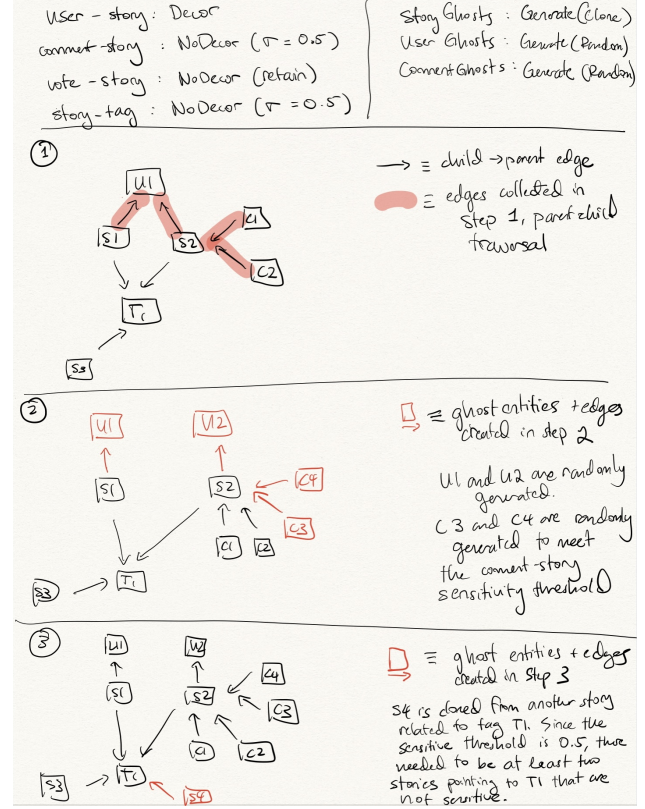 user-story: Decor
comment-story: NoDecor (σ = 0.5)
vote-story: NoDecor (retain)
story-tag: NoDecor (σ = 0.5)
Story Ghosts: Generate (Clone)
User Ghosts: Generate (Random)
Comment Ghosts: Generate (Random)
1
U1
S1
S2
C1
C2
T1
S3
→ ≡ child → parent edge
≡ edges collected in
step 1, parent child
traversal
2
U1
U2
S1
S2
C4
C3
C1
C2
S3
T1
≡ ghost entities + edges
created in step 2
U1 and U2 are randomly
generated.
C3 and C4 are randomly
generated to meet
the comment-story
sensitivity threshold
3
U1
U2
S1
S2
C4
C3
C1
C2
S3
T1
S4
≡ ghost entities + edges
created in Step 3
S4 is cloned from another story
related to tag T1. Since the
sensitive threshold is 0.5, there
needed to be at least two
stories pointing to T1 that are
not sensitive.